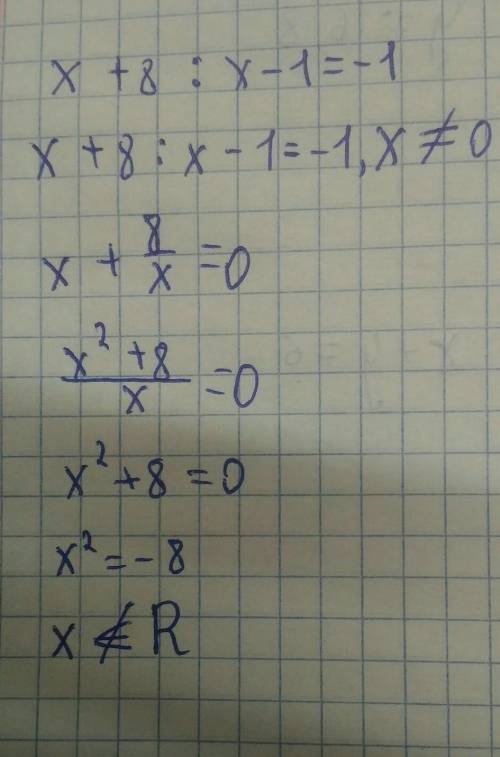 x + 8 : x - 1 = -1
x + 8 : x - 1 = -1, x ≠ 0
x + 8/x = 0
x² + 8 / x = 0
x² + 8 = 0
x² = - 8
x ∉ R